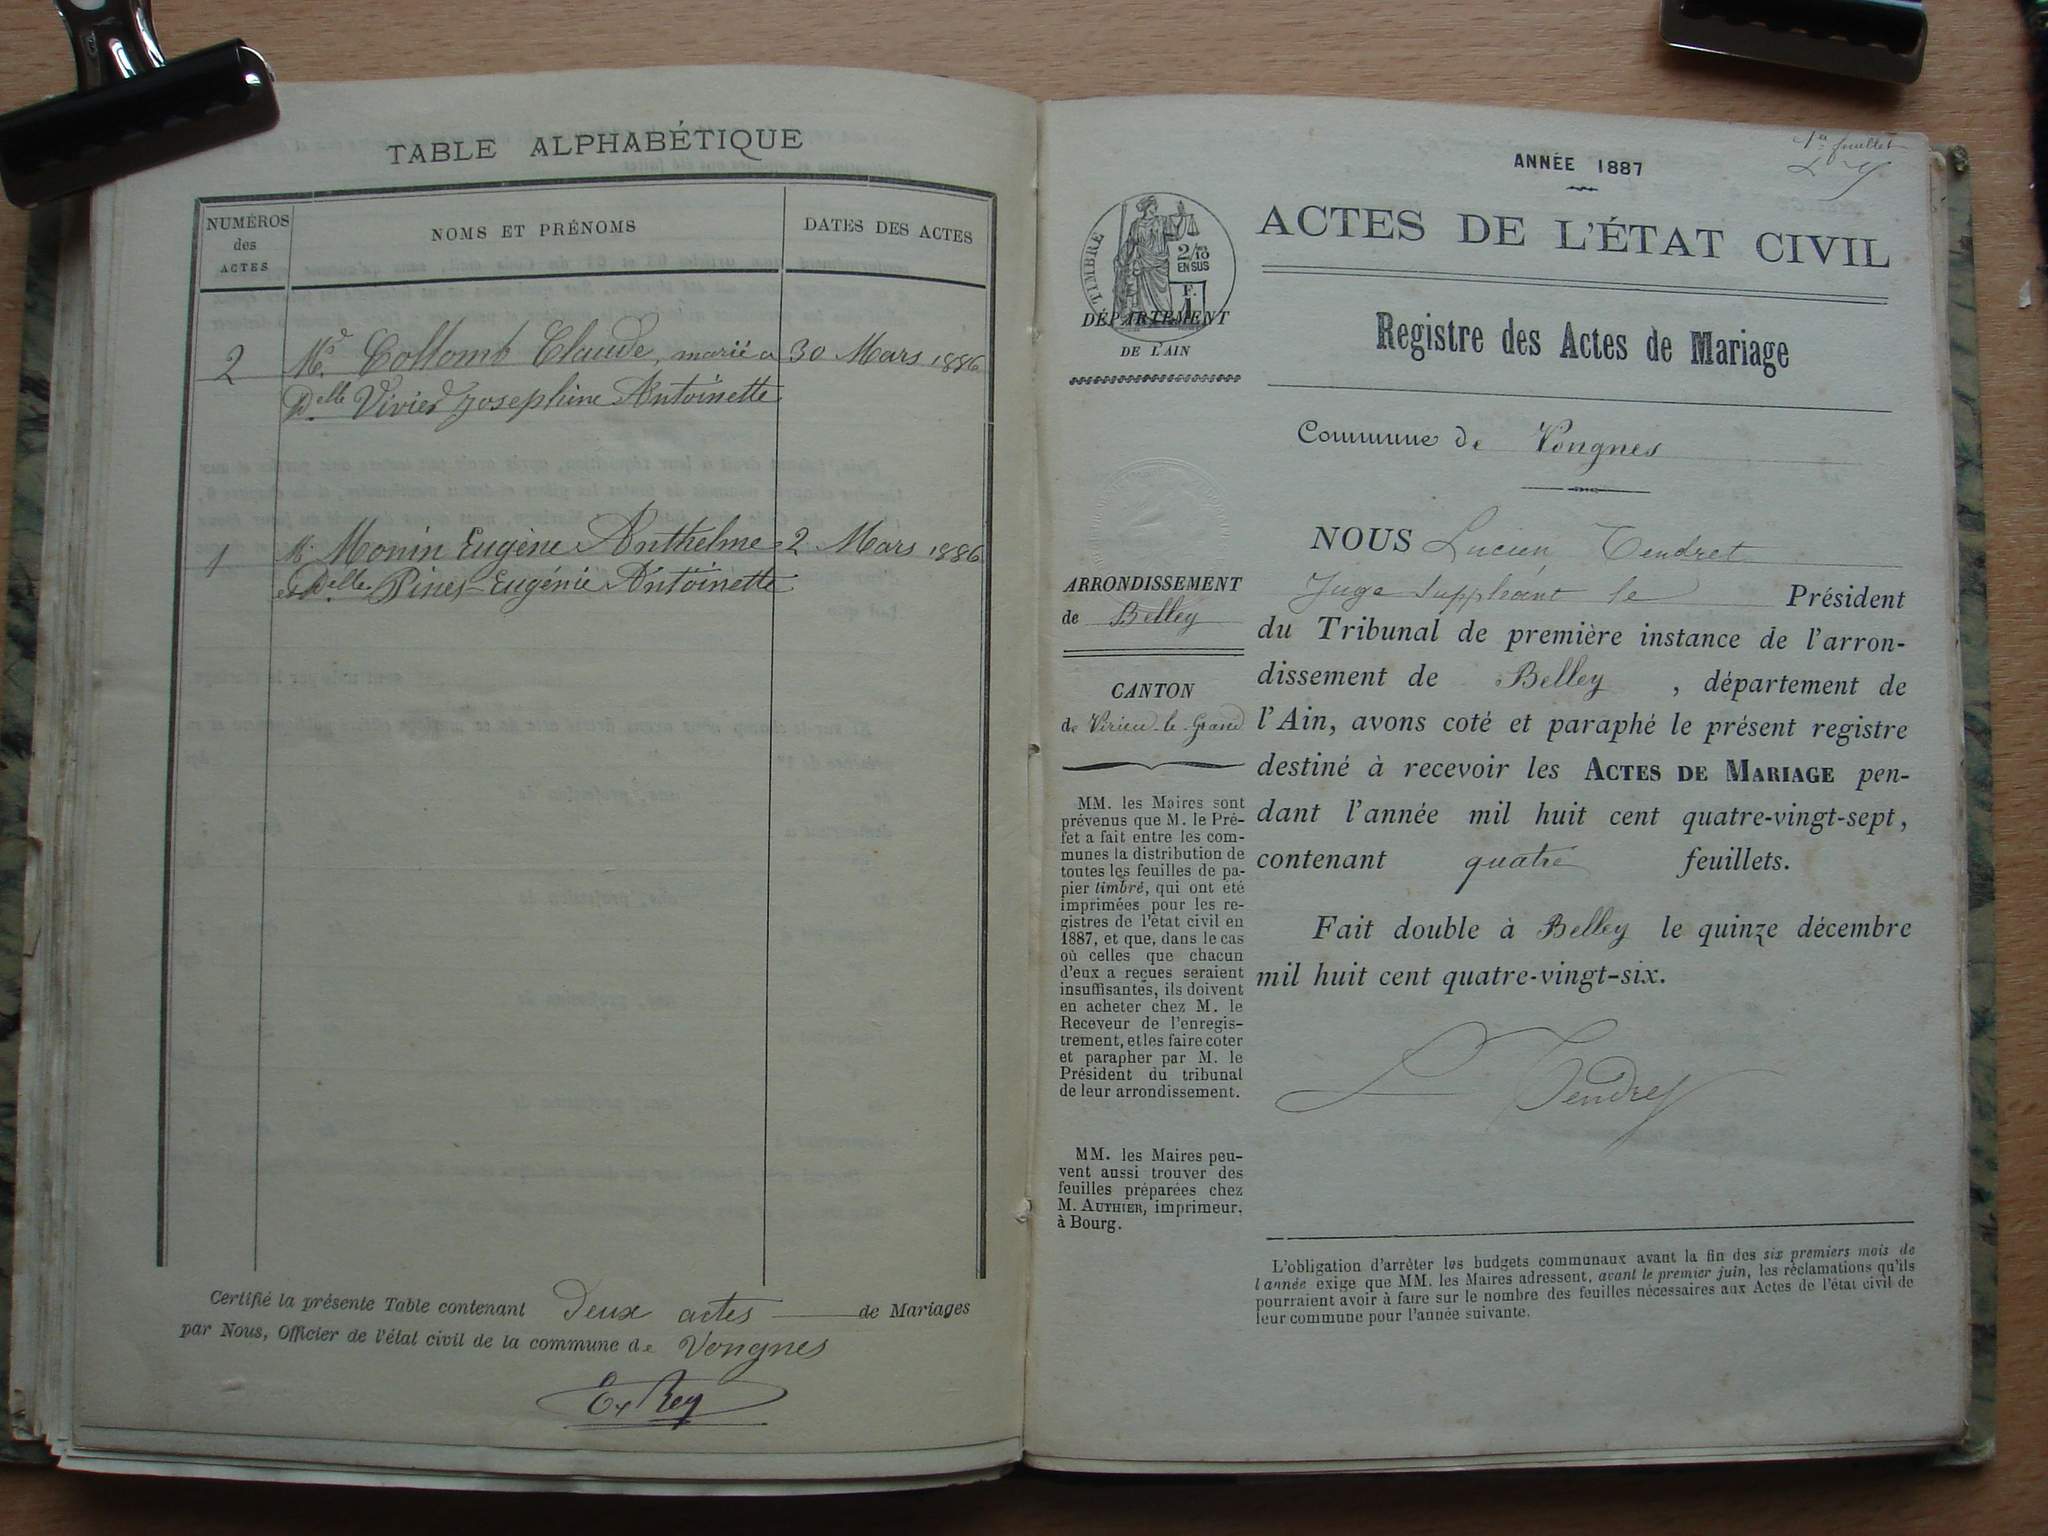 TABLE ALPHABÉTIQUE
NUMÉROS
des
ACTES
NOMS ET PRÉNOMS
DATES DES ACTES
2 Mr Collomb Claude, marié a 30 Mars 1886
Delle Vivier Josephine Antoinette
1 Mr Monin Eugène Anthelme 2 Mars 1886
et Delle Pines Eugénie Antoinette
Certifié la présente Table contenant Deux actes de Mariages
par Nous, Officier de l'état civil de la commune de Vongnes
Rey
1er feuillet
ANNÉE 1887
ACTES DE L'ÉTAT CIVIL
TIMBRE
2/10
EN SUS
F.
1
DÉPARTEMENT
DE L'AIN
Registre des Actes de Mariage
Commune de Vongnes
ARRONDISSEMENT
de Belley
CANTON
de Virieu-le-Grand
MM. les Maires sont
prévenus que M. le Pré-
fet a fait entre les com-
munes la distribution de
toutes les feuilles de pa-
pier timbré, qui ont été
imprimées pour les re-
gistres de l'état civil en
1887, et que, dans le cas
où celles que chacun
d'eux a reçues seraient
insuffisantes, ils doivent
en acheter chez M. le
Receveur de l'enregis-
trement, et les faire coter
et parapher par M. le
Président du tribunal
de leur arrondissement.
MM. les Maires peu-
vent aussi trouver des
feuilles préparées chez
M. AUTHIER, imprimeur,
à Bourg.
NOUS Lucien Tendret
Juge Suppléant le Président
du Tribunal de première instance de l'arron-
dissement de Belley , département de
l'Ain, avons coté et paraphé le présent registre
destiné à recevoir les ACTES DE MARIAGE pen-
dant l'année mil huit cent quatre-vingt-sept,
contenant quatre feuillets.
Fait double à Belley le quinze décembre
mil huit cent quatre-vingt-six.
L Tendret
L'obligation d'arrêter les budgets communaux avant la fin des six premiers mois de
l'année exige que MM. les Maires adressent, avant le premier juin, les réclamations qu'ils
pourraient avoir à faire sur le nombre des feuilles nécessaires aux Actes de l'état civil de
leur commune pour l'année suivante.